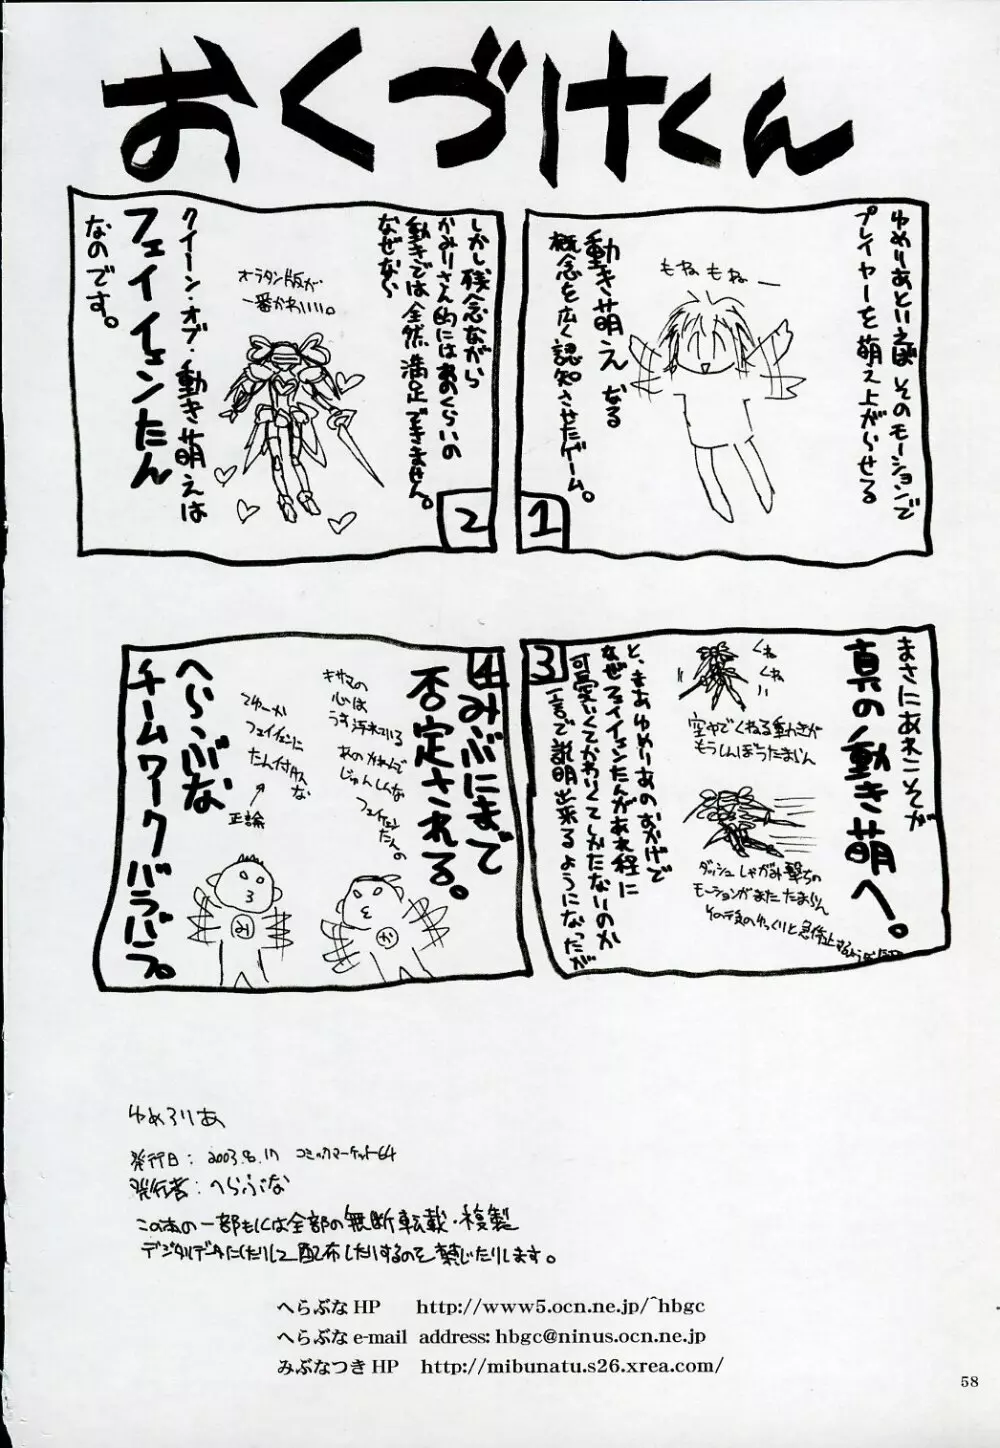 おくづけくん
ゆめりあといえば そのモーションで
プレイヤーを萌え上がらせる
もねもねー
動き萌えなる
概念を広く認知させたゲーム。
1
しかし残念ながら
かみりさん的にはあのくらいの
動きでは全然、満足できません。
なぜなら
オラタン版が
一番かわいい。
クイーン・オブ・動き萌えは
フェイイェンたん
なのです。
2
まさにあれこそが
真の動き萌へ。
くね
くね
空中でくねる動きが
もうしんぼうたまらん
ダッシュしゃがみ撃ちの
モーションがまたたまらん
と、まあゆめりあのおかげで
なぜフェイイェンたんがあれ程に
可愛いくてかわいくてしかたないのか
一言で説明出来るようになったが
3
みぶにまで
否定される。
キサマの
心は
うす汚れている
あのかれんで
じゅんしんな
フェイイェン
たんの
てゆーか
フェイイェンに
たん付けんな
正論
み
か
へらぶな
チームワークバラバラ。
4
ゆめろりあ
発行日：2003.8.17 コミックマーケット64
発行者：へらぶな
この本の一部もしくは全部の無断転載・複製
デジタルデータにしたりして配布したりするのを禁じたりします。
へらぶなHP http://www5.ocn.ne.jp/~hbgc
へらぶなe-mail address: hbgc@ninus.ocn.ne.jp
みぶなつきHP http://mibunatu.s26.xrea.com/
58